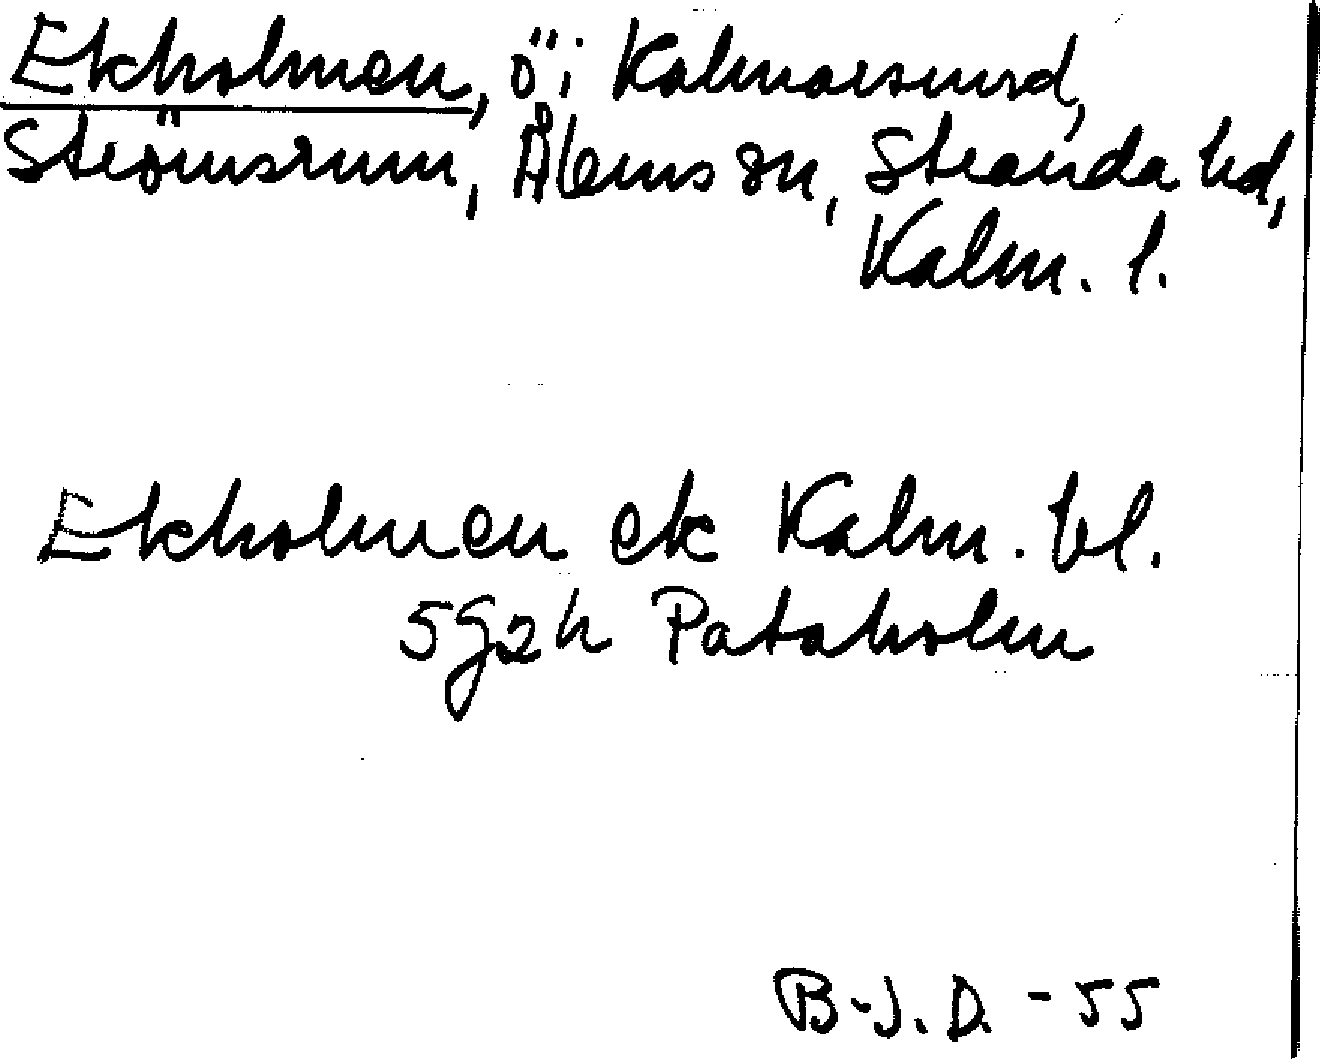 Ekholmen, ö i Kalmarsund,
Strömsrum, Ålems sn, Stranda hd,
Kalm. l.
Ekholmen ek Kalm. bl.
5g2h Pataholm
B-J. D. - 55